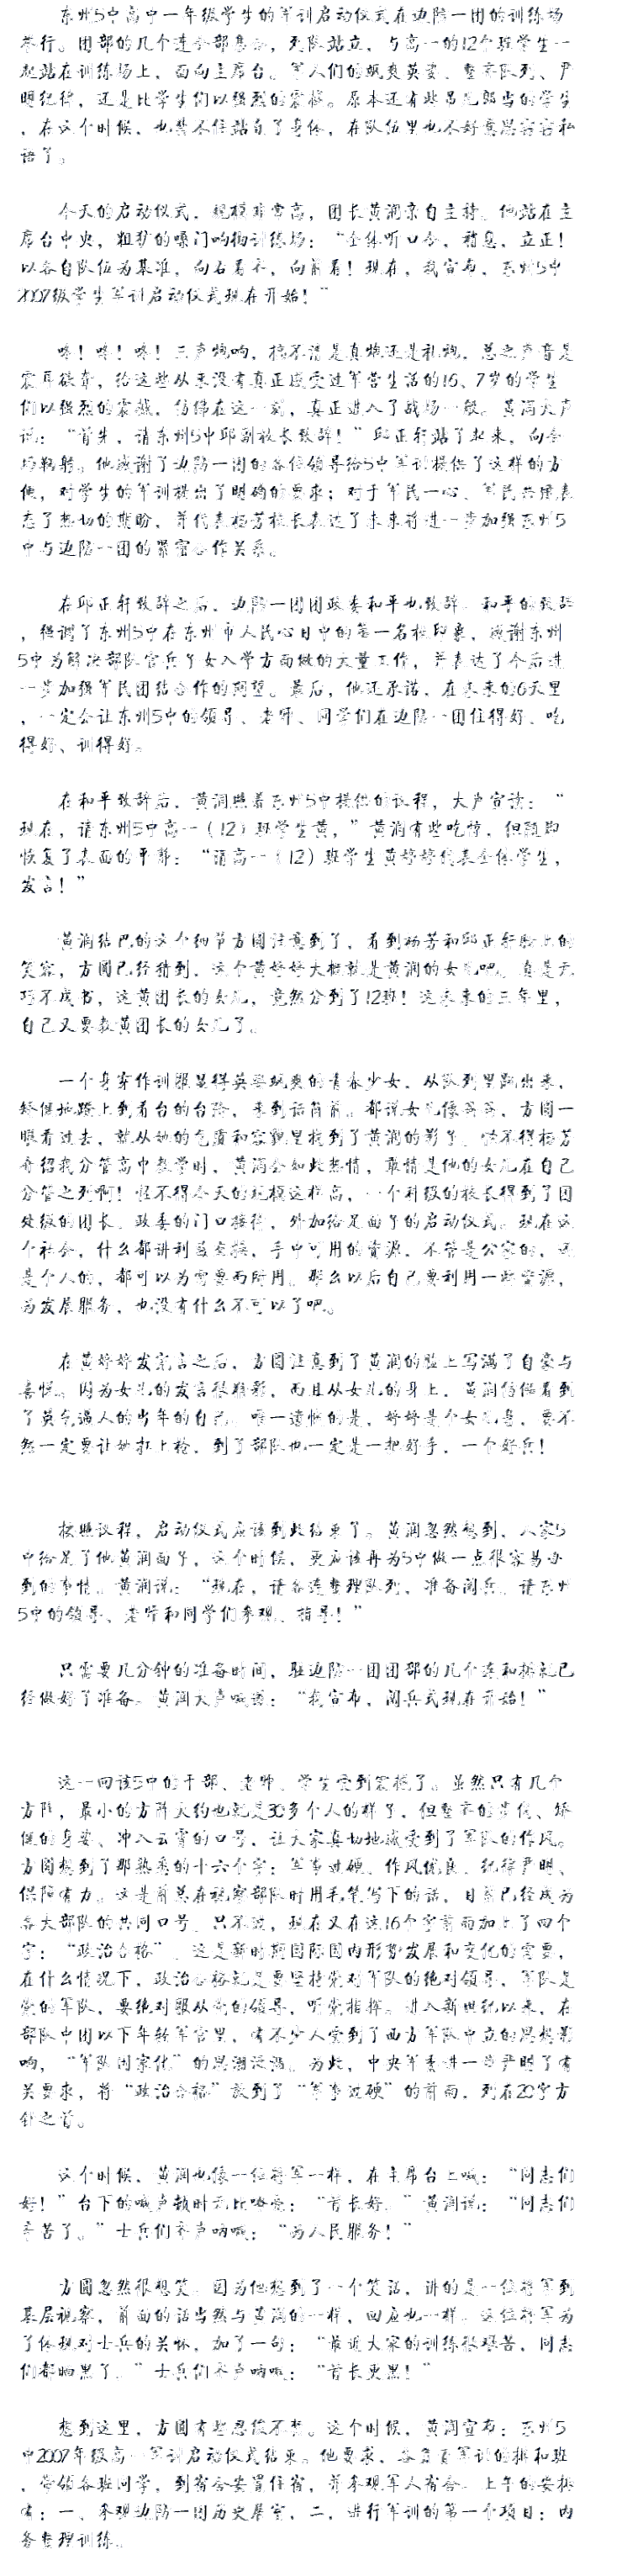 东州5中高中一年级学生的军训启动仪式在边防一团的训练场
举行。团部的几个连全部集合，列队站立，与高一的12个班学生一
起站在训练场上，面向主席台。军人们的飒爽英姿、整齐队列、严
明纪律，还是比学生们以强烈的震撼。原本还有些吊儿郎当的学生
，在这个时候，也禁不住站直了身体，在队伍里也不好意思窃窃私
语了。
今天的启动仪式，规模非常高，团长黄润亲自主持。他站在主
席台中央，粗犷的嗓门响彻训练场：“全体听口令，稍息，立正！
以各自队伍为基准，向右看齐，向前看！现在，我宣布，东州5中
2007级学生军训启动仪式现在开始！”
咚！咚！咚！三声炮响，搞不清是真炮还是礼炮，总之声音是
震耳欲聋，给这些从来没有真正感受过军营生活的16、7岁的学生
们以强烈的震撼，仿佛在这一刻，真正进入了战场一般。黄润大声
说：“首先，请东州5中邱副校长致辞！”邱正轩站了起来，向全
场鞠躬。他感谢了边防一团的各位领导给5中军训提供了这样的方
便，对学生的军训提出了明确的要求；对于军民一心、军民共建表
态了热切的期盼，并代表杨芳校长表达了未来将进一步加强东州5
中与边防一团的紧密合作关系。
在邱正轩致辞之后，边防一团团政委和平也致辞。和平的致辞
，强调了东州5中在东州市人民心目中的第一名校印象，感谢东州
5中为解决部队官兵子女入学方面做的大量工作，并表达了今后进
一步加强军民团结合作的期望。最后，他还承诺，在未来的6天里
，一定会让东州5中的领导、老师、同学们在边防一团住得好、吃
得好、训得好。
在和平致辞后，黄润照着东州5中提供的议程，大声宣读：“
现在，请东州5中高一（12）班学生黄，”黄润有些吃惊，但随即
恢复了表面的平静：“请高一（12）班学生黄婷婷代表全体学生，
发言！”
黄润结巴的这个细节方圆注意到了，看到杨芳和邱正轩脸上的
笑容，方圆已经猜到，这个黄婷婷大概就是黄润的女儿吧。真是无
巧不成书，这黄团长的女儿，竟然分到了12班！这未来的三年里，
自己又要教黄团长的女儿了。
一个身穿作训服显得英姿飒爽的青春少女，从队列里跑出来，
矫健地踏上到看台的台阶，来到话筒前。都说女儿像爸爸，方圆一
眼看过去，就从她的气质和容貌里找到了黄润的影子。怪不得杨芳
介绍我分管高中教学时，黄润会如此热情，敢情是他的女儿在自己
分管之列啊！怪不得今天的规模这样高，一个科级的校长得到了团
处级的团长、政委的门口接待，外加给足面子的启动仪式。现在这
个社会，什么都讲利益交换，手中可用的资源，不管是公家的，还
是个人的，都可以为需要而所用。那么以后自己要利用一些资源，
为发展服务，也没有什么不可以了吧。
在黄婷婷发完言之后，方圆注意到了黄润的脸上写满了自豪与
喜悦。因为女儿的发言很精彩，而且从女儿的身上，黄润仿佛看到
了英气逼人的当年的自己。唯一遗憾的是，婷婷是个女儿身，要不
然一定要让她扛上枪，到了部队也一定是一把好手，一个好兵！
按照议程，启动仪式应该到此结束了。黄润忽然想到，人家5
中给足了他黄润面子，这个时候，更应该再为5中做一点很容易办
到的事情。黄润说：“现在，请各连整理队列，准备阅兵。请东州
5中的领导、老师和同学们参观、指导！”
只需要几分钟的准备时间，驻边防一团团部的几个连和排就已
经做好了准备。黄润大声喊道：“我宣布，阅兵式现在开始！”
这一回该5中的干部、老师、学生受到震撼了。虽然只有几个
方阵，最小的方阵大约也就是30多个人的样子，但整齐的步伐、矫
健的身姿、冲入云霄的口号，让大家真切地感受到了军队的作风。
方圆想到了那熟悉的十六个字：军事过硬、作风优良、纪律严明、
保障有力。这是前总在视察部队时用毛笔写下的话，目前已经成为
各大部队的共同口号。只不过，现在又在这16个字前面加上了四个
字：“政治合格”。这是新时期国际国内形势发展和变化的需要，
在什么情况下，政治合格就是要坚持党对军队的绝对领导，军队是
党的军队，要绝对服从党的领导，听党指挥。进入新世纪以来，在
部队中团以下年轻军官里，有不少人受到了西方军队中立的思想影
响，“军队国家化”的思潮泛滥。为此，中央军委进一步严明了有
关要求，将“政治合格”放到了“军事过硬”的前面，列在20字方
针之首。
这个时候，黄润也像一位将军一样，在主席台上喊：“同志们
好！”台下的喊声顿时无比嘹亮：“首长好。”黄润说：“同志们
辛苦了。”士兵们齐声呐喊：“为人民服务！”
方圆忽然很想笑。因为他想到了一个笑话，讲的是一位将军到
基层视察，前面的话当然与黄润的一样，回应也一样。这位将军为
了体现对士兵的关怀，加了一句：“最近大家的训练很艰苦，同志
们都晒黑了。”士兵们齐声呐喊：“首长更黑！”
想到这里，方圆有些忍俊不禁。这个时候，黄润宣布：东州5
中2007年级高一军训启动仪式结束。他要求，各负责军训的排和班
，带领各班同学，到宿舍安置住宿，并参观军人宿舍。上午的安排
有：一、参观边防一团历史展室，二、进行军训的第一个项目：内
务整理训练。